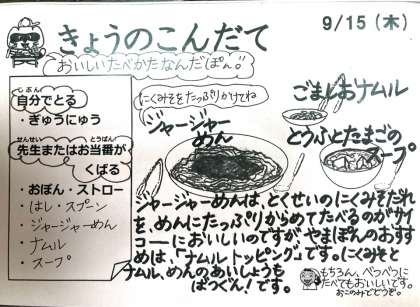 9/15(木)
きょうのこんだて
おいしいたべかたなんだぽん♪
じぶん
自分でとる
・ぎゅうにゅう
せんせい とうばん
先生またはお当番が
くばる
・おぼん・ストロー
・はし・スプーン
・ジャージャーめん
・ナムル
・スープ
にくみそをたっぷりかけてね
ジャージャー
めん
ごましおナムル
とうふとたまごの
スープ
ジャージャーめんは、とくせいのにくみそだれ
を、めんにたっぷりからめてたべるのがサイ
コーにおいしいのですが やまぽんのおすす
めは、「ナムルトッピング」です。にくみそと
ナムル、めんのあいしょうも
ばつぐん!です。
もちろん、べつべつに
たべてもおいしいです。
おこのみでどうぞ。